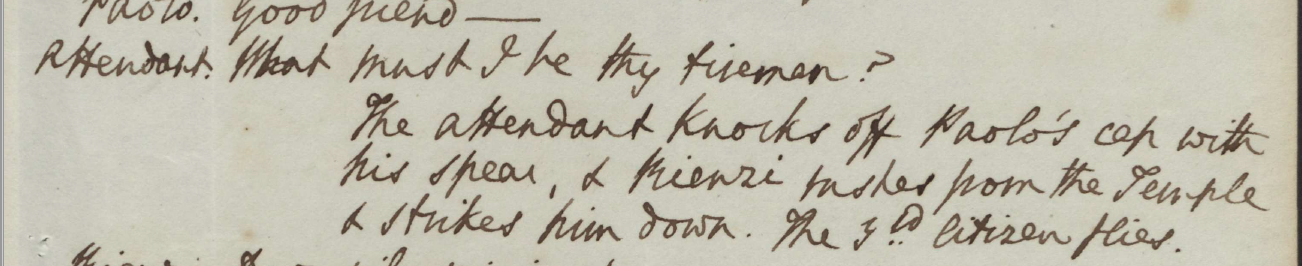 Paolo. Good friend —
Attendant. What must I be thy fireman?
The attendant knocks off Paolo's cap with
his spear, & Rienzi rushes from the Temple
& strikes him down. The 3rd Citizen flies.
Rienzi.